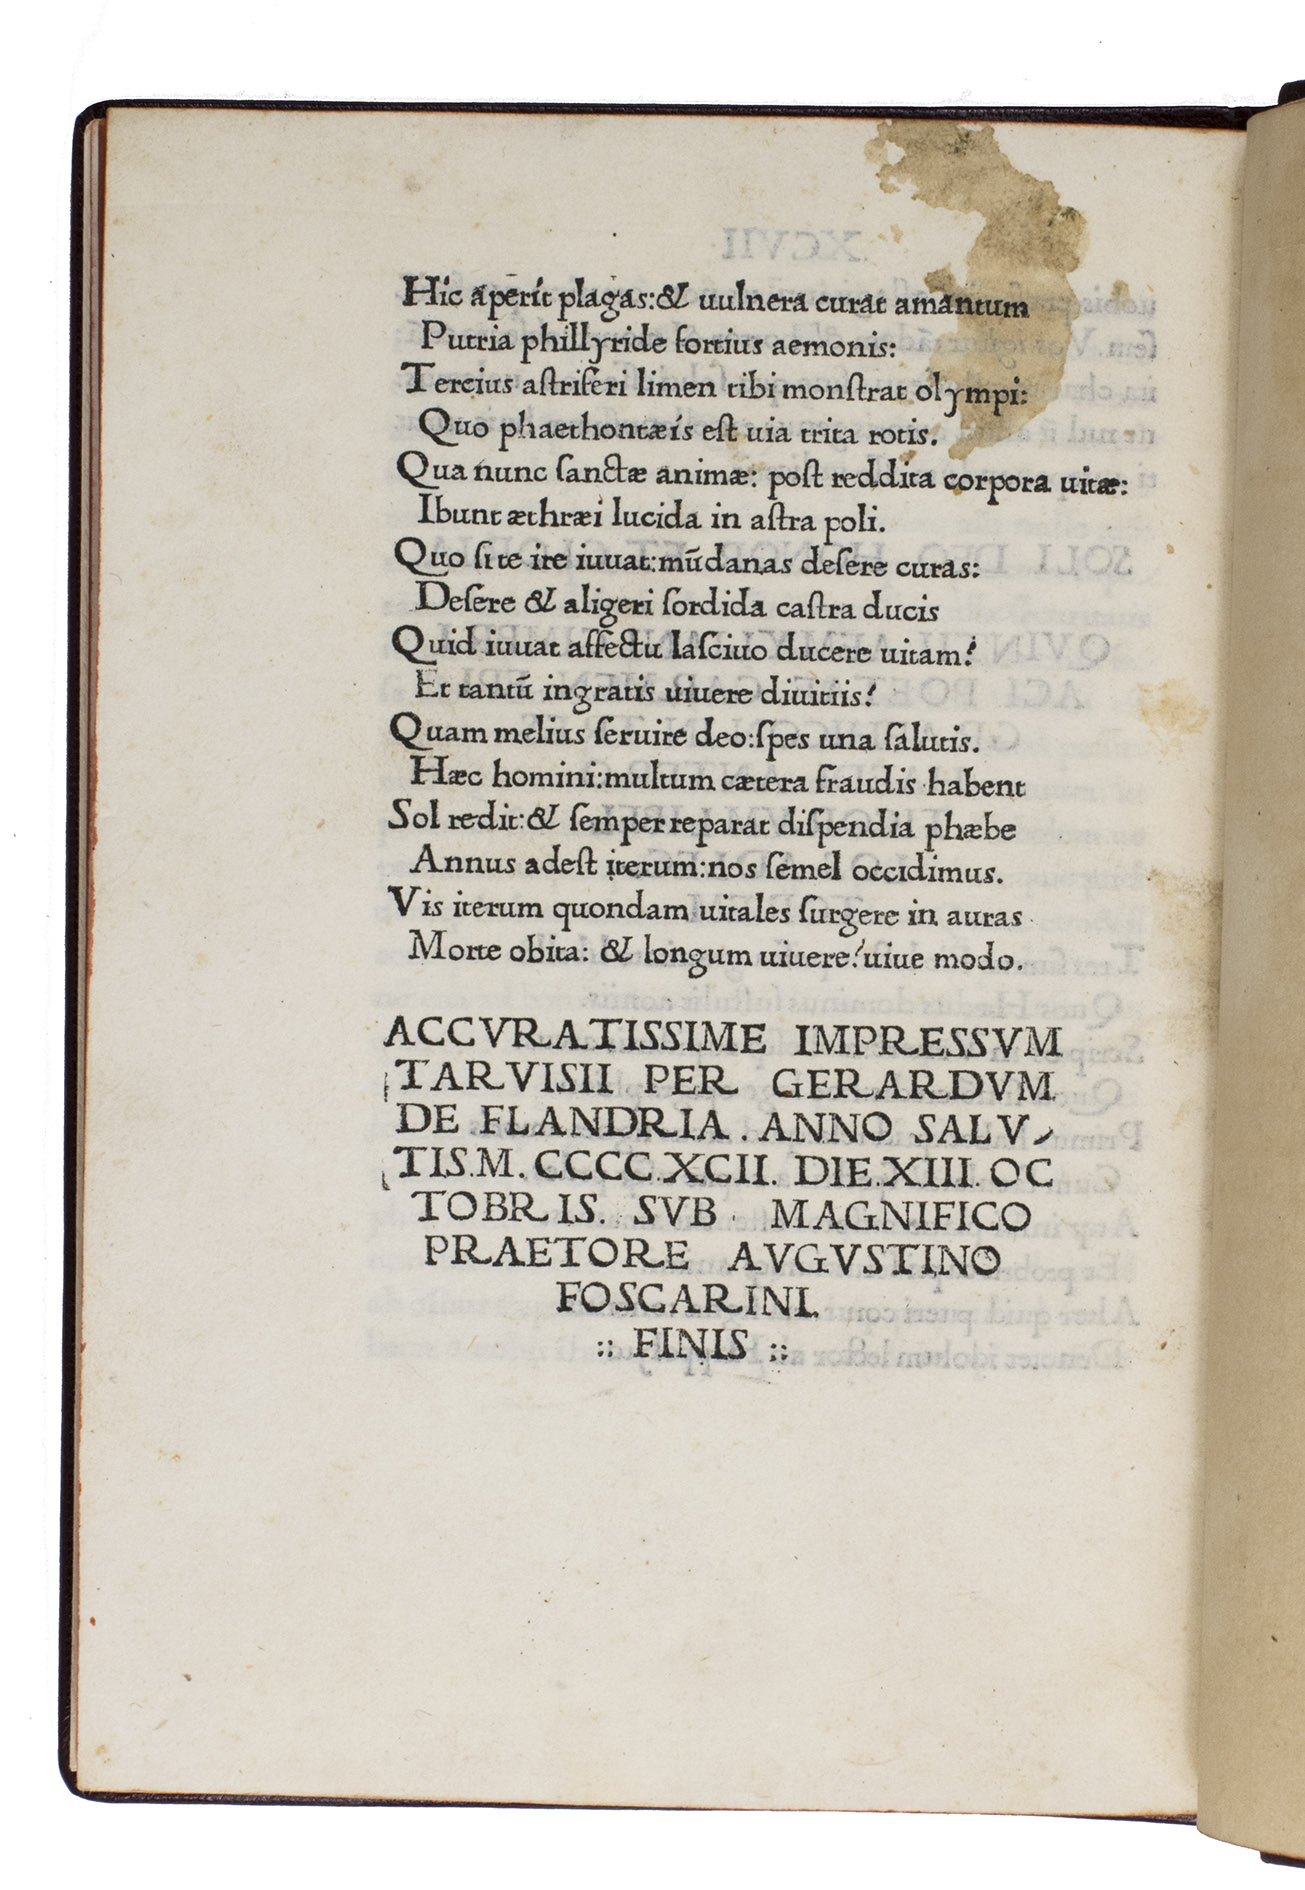 Hic aperit plagas:& uulnera curat amantum
Putria phillyride fortius aemonis:
Tercius astriferi limen tibi monstrat olympi:
Quo phaethontæis est uia trita rotis.
Qua nunc sanctæ animæ: post reddita corpora uitæ:
Ibunt æthræi lucida in astra poli.
Quo si te ire iuuat:mūdanas desere curas:
Desere & aligeri sordida castra ducis
Quid iuuat affectu lasciuo ducere uitam?
Et tantū ingratis uiuere diuitiis?
Quam melius seruire deo:spes una salutis.
Hæc homini:multum cætera fraudis habent
Sol redit:& semper reparat dispendia phæbe
Annus adest iterum:nos semel occidimus.
Vis iterum quondam uitales surgere in auras
Morte obita: & longum uiuere?uiue modo.
ACCVRATISSIME IMPRESSVM
TARVISII PER GERARDVM
DE FLANDRIA. ANNO SALV-
TIS.M.CCCC.XCII. DIE.XIII.OC
TOBRIS. SVB MAGNIFICO
PRAETORE AVGVSTINO
FOSCARINI.
:: FINIS ::